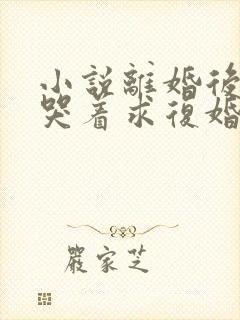 小說離婚後
哭着求復婚
嚴家芝